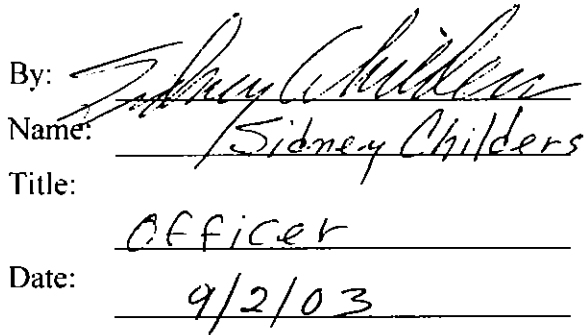 By: Sidney Childers
Name: Sidney Childers
Title:
Officer
Date: 9/2/03